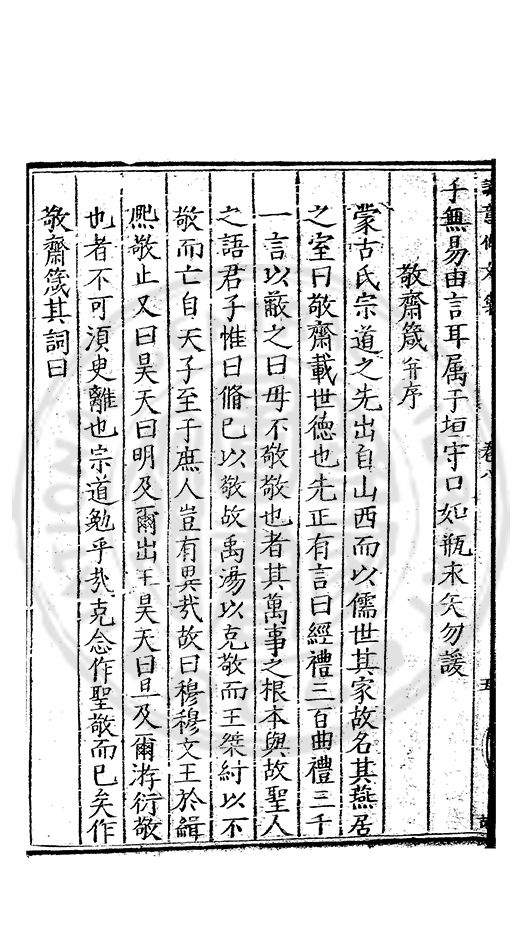 文集 卷八 五
手無易由言耳属于垣守口如瓶未矢勿諼
敬齋箴并序
蒙古氏宗道之先出自山西而以儒世其家故名其燕居
之室曰敬齋載世德也先正有言曰經禮三百曲禮三千
一言以蔽之曰毋不敬敬也者其萬事之根本與故聖人
之語君子惟曰脩己以敬故禹湯以克敬而王桀紂以不
敬而亡自天子至于庶人豈有異哉故曰穆穆文王於緝
熈敬止又曰昊天曰明及爾出王昊天曰旦及爾游衍敬
也者不可湏臾離也宗道勉乎哉克念作聖敬而已矣作
敬齋箴其詞曰